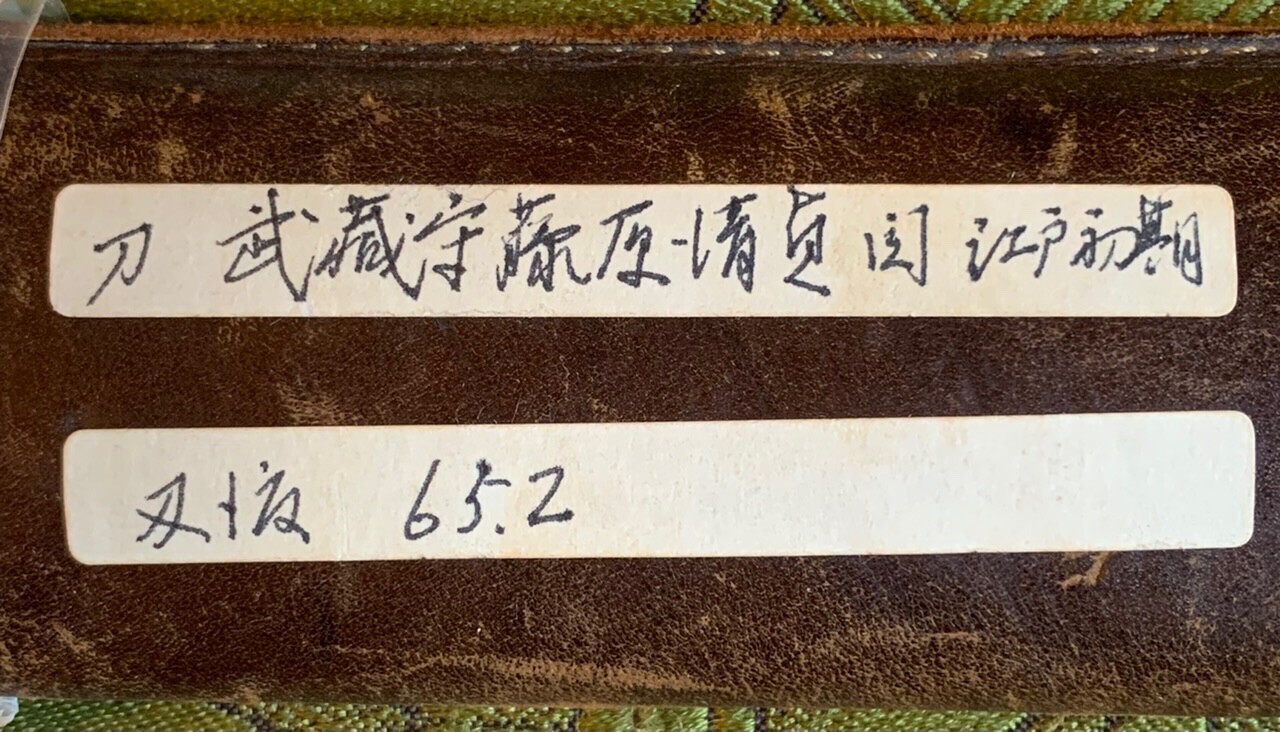 刀 武蔵守藤原清貞 関 江戸初期
刃渡 65.2